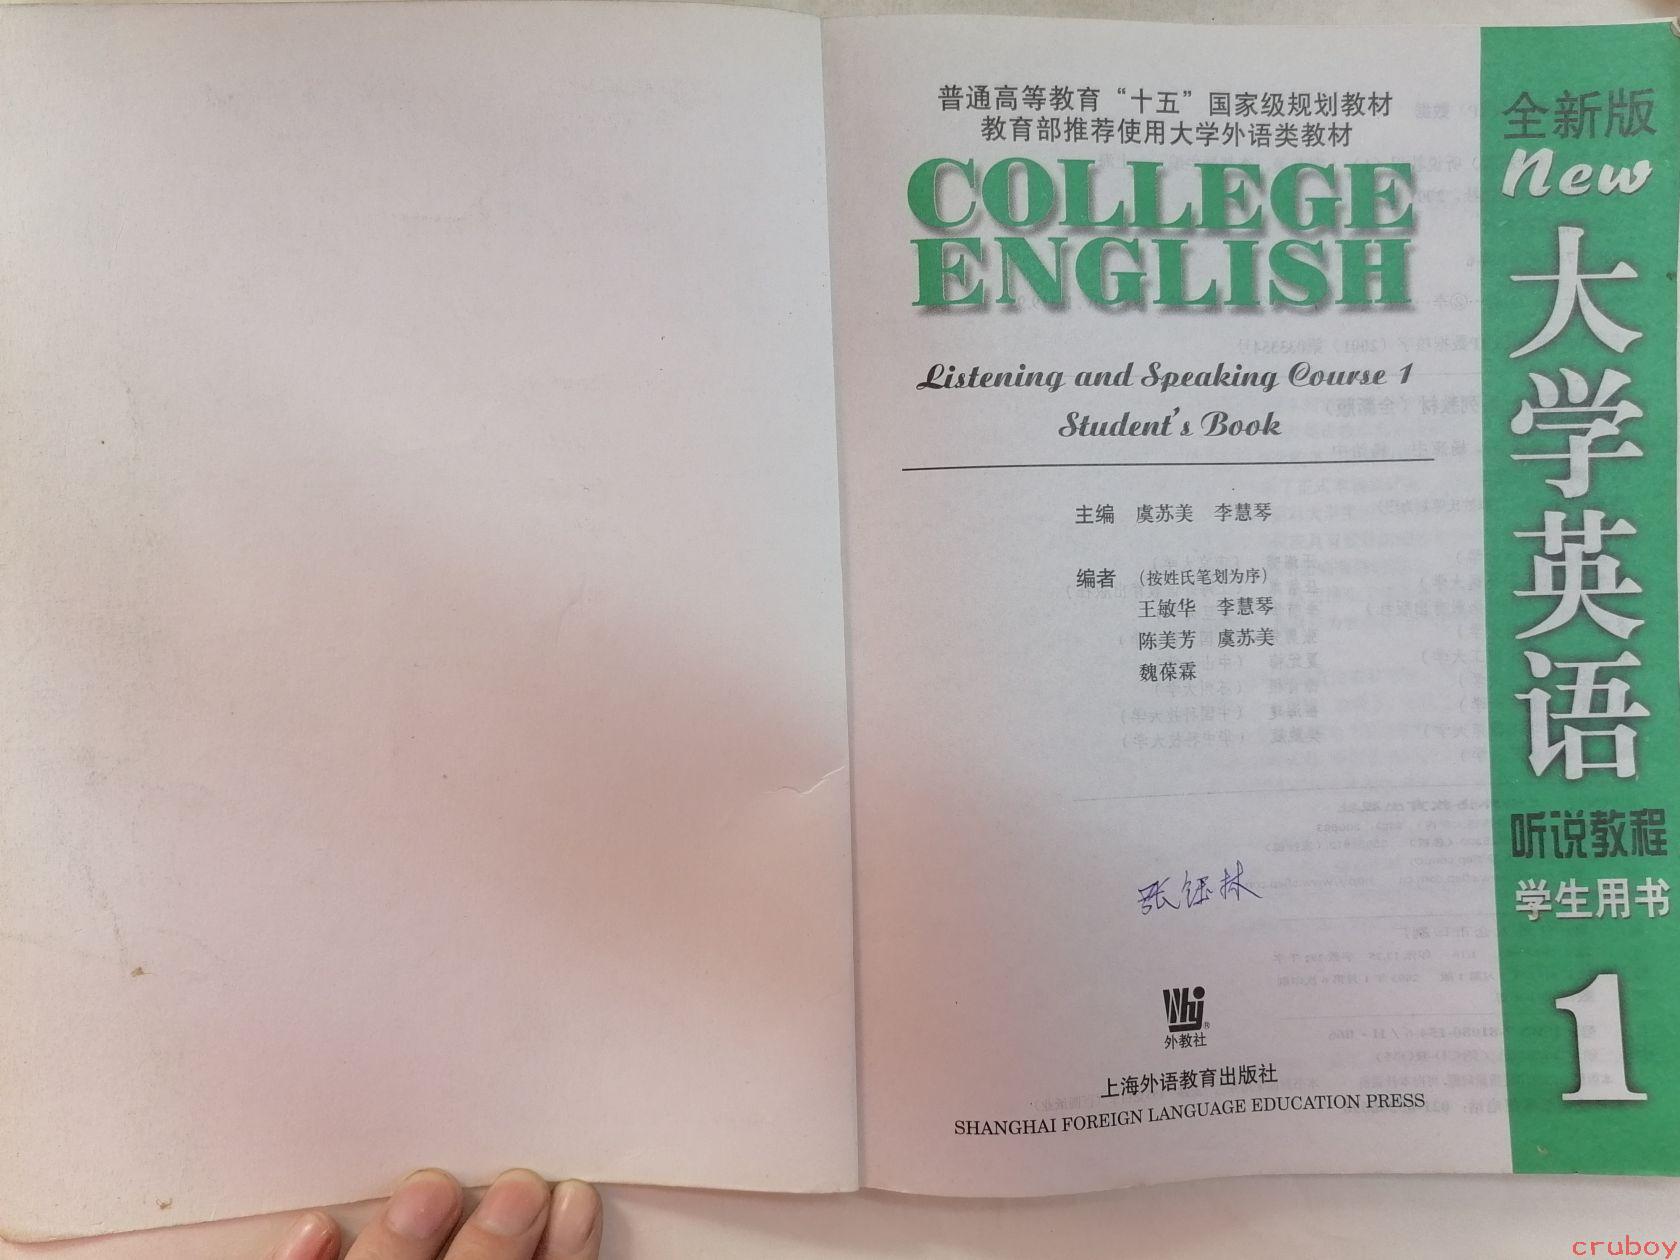 普通高等教育“十五”国家级规划教材
教育部推荐使用大学外语类教材
COLLEGE
ENGLISH
Listening and Speaking Course 1
Student's Book
主编 虞苏美 李慧琴
编者 (按姓氏笔划为序)
王敏华 李慧琴
陈美芳 虞苏美
魏葆霖
Why®
外教社
上海外语教育出版社
SHANGHAI FOREIGN LANGUAGE EDUCATION PRESS
全新版
New
大学英语
听说教程
学生用书
1
cruboy